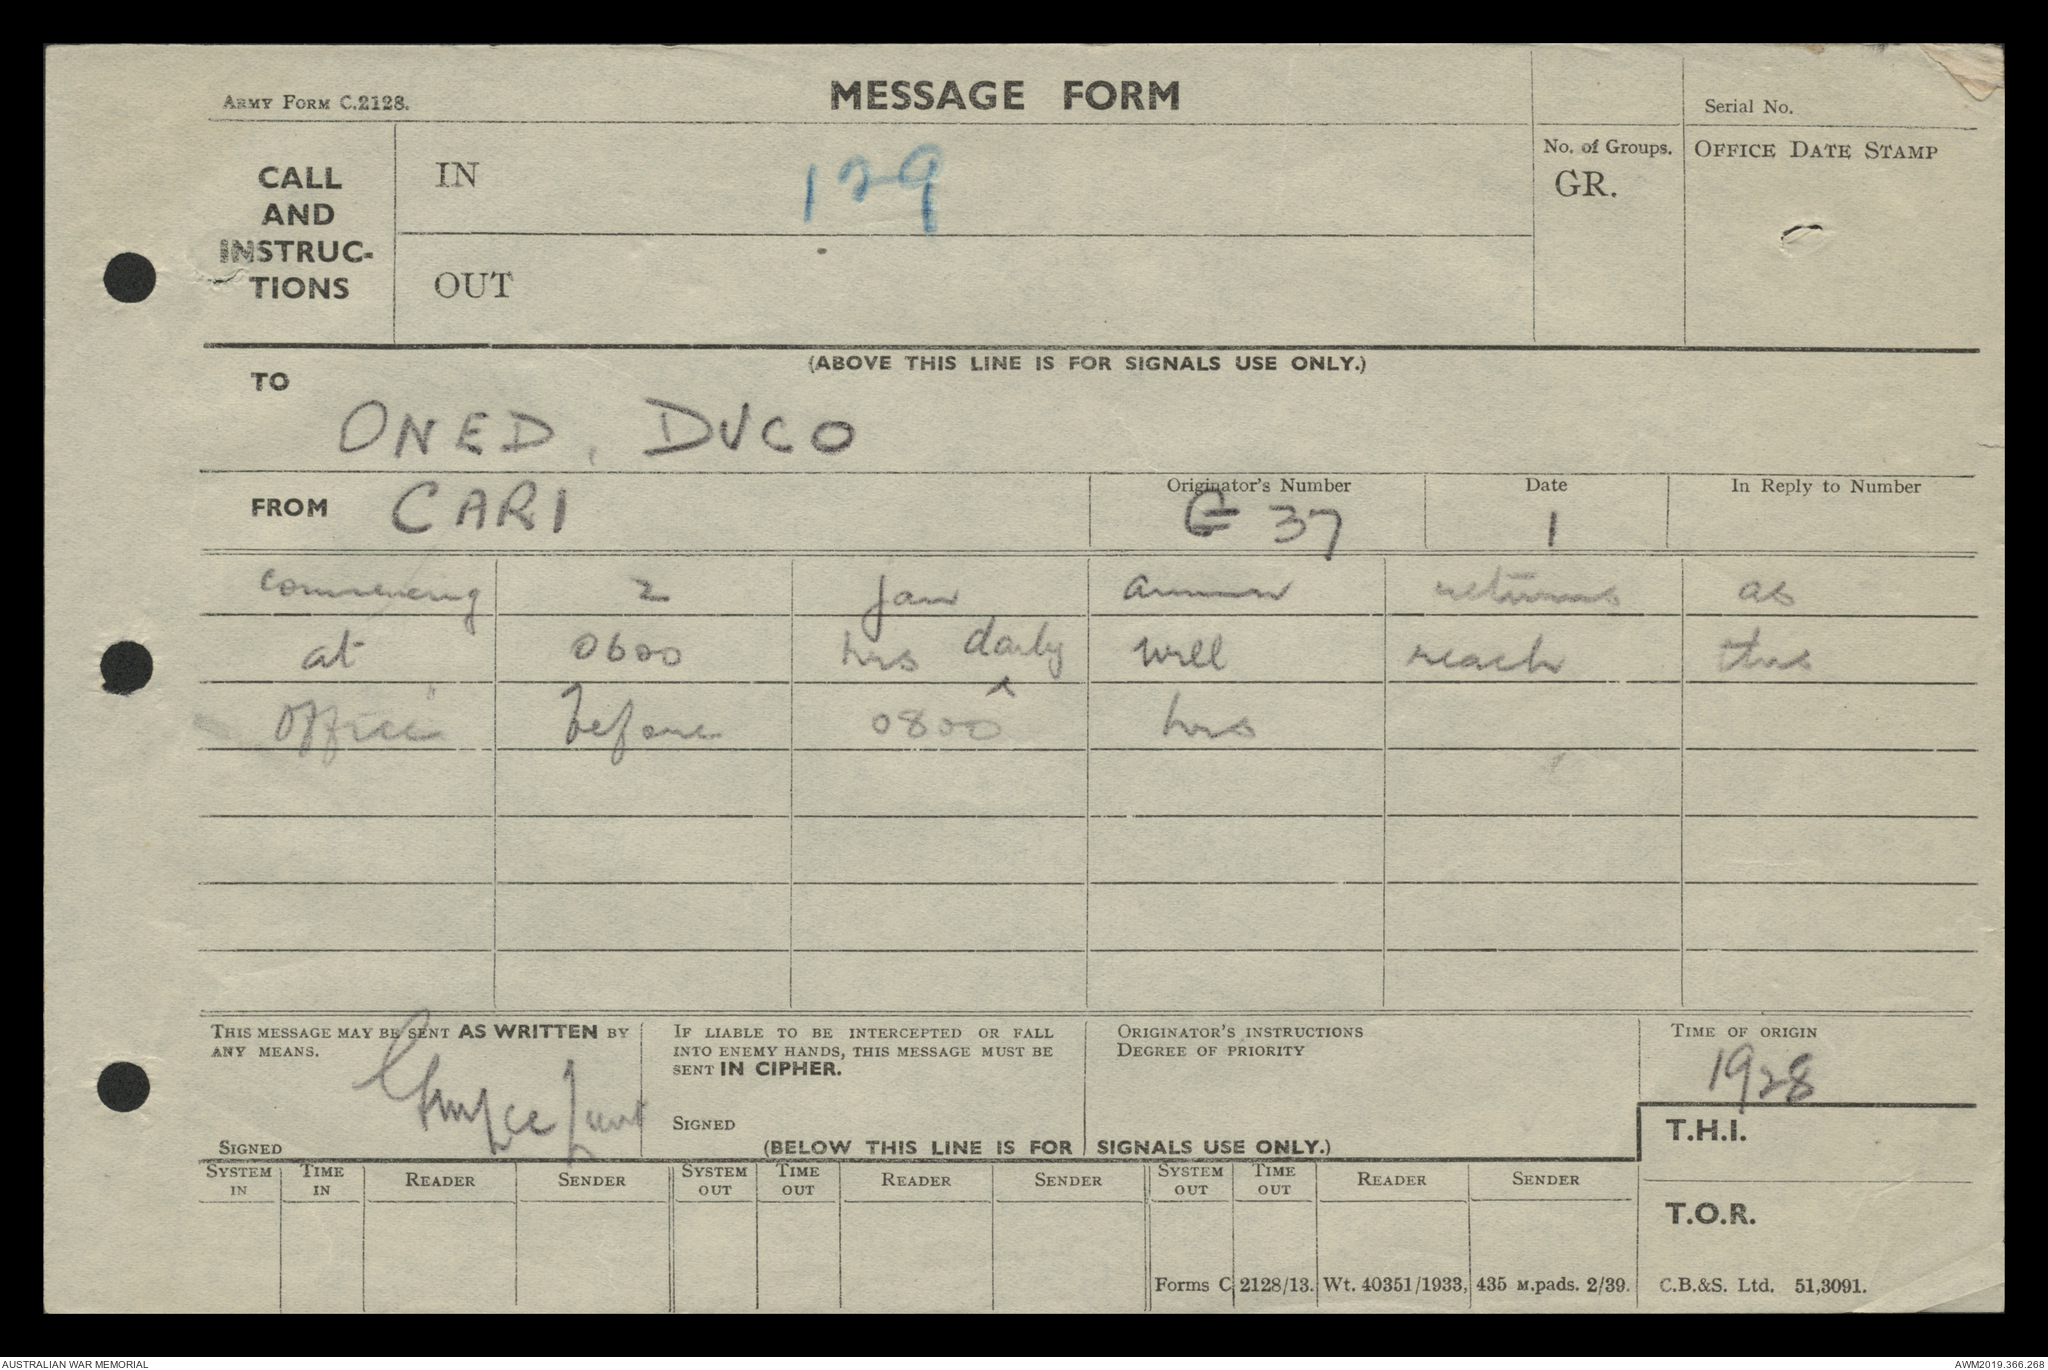 ARMY FORM C.2128.
MESSAGE FORM
Serial No.
CALL AND INSTRUC-TIONS
IN
129
No. of Groups.
GR.
OFFICE DATE STAMP
OUT
(ABOVE THIS LINE IS FOR SIGNALS USE ONLY.)
TO
ONED, DUCO
FROM CARI
Originator's Number
G 37
Date
1
In Reply to Number
commencing 2 Jan ammn returns as
at 0600 hrs daily will reach this
office before 0800 hrs
THIS MESSAGE MAY BE SENT AS WRITTEN BY
ANY MEANS.
SIGNED
IF LIABLE TO BE INTERCEPTED OR FALL
INTO ENEMY HANDS, THIS MESSAGE MUST BE
SENT IN CIPHER.
SIGNED
ORIGINATOR'S INSTRUCTIONS
DEGREE OF PRIORITY
TIME OF ORIGIN
1928
(BELOW THIS LINE IS FOR SIGNALS USE ONLY.)
T.H.I.
SYSTEM IN
TIME IN
READER
SENDER
SYSTEM OUT
TIME OUT
READER
SENDER
SYSTEM OUT
TIME OUT
READER
SENDER
T.O.R.
Forms C 2128/13. Wt. 40351/1933, 435 M.pads. 2/39. C.B.&S. Ltd. 51,3091.
AUSTRALIAN WAR MEMORIAL
AWM2019.366.268